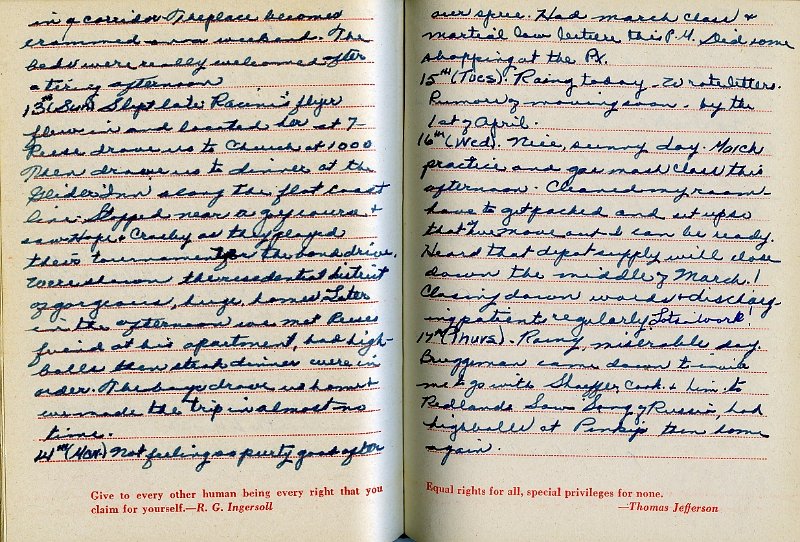 in a corridor. The place becomes
crammed on a weekend. The
beds were really welcomed after
a tiring afternoon
13th (Sun) Slept late Racini's flyer
flew in and located her at 7-
Reese drove us to Church at 1000
Then drove us to dinner at the
Glider Inn along the flat coast
line. Stopped near a golf course +
saw Hope + Crosby as they played
their tournament for the bond drive.
Were shown the residential district
of gorgeous, huge, homes. Later
in the afternoon we met Reeses
friend at his apartment, had high-
balls then steak dinner were in
order. The boys drove us home +
we made the trip in almost no
time.
14th (Mon) Not feeling so purty good after
Give to every other human being every right that you
claim for yourself.—R. G. Ingersoll
our spree. Had march class +
martial law lecture this P.M. Did some
shopping at the Px.
15th (Tues). Rainy today - Wrote letters.
Rumor of moving soon - by the
1st of April.
16th (Wed). Nice, sunny day. March
practice and gas mask class this
afternoon. Cleaned my room
have to get packed and set up so
that I've move out I can be ready.
Heard that depot supply will close
down the middle of March!
Closing down wards + discharg-
ing patients regularly. Lots work!
17th (Thurs). Rainy, miserable day.
Bruggman came down to invite
me to go with Shaeffer, Cook + him to
Redlands. Saw Song of Russia, had
highballs at Pinkys then home
again.
Equal rights for all, special privileges for none.
—Thomas Jefferson